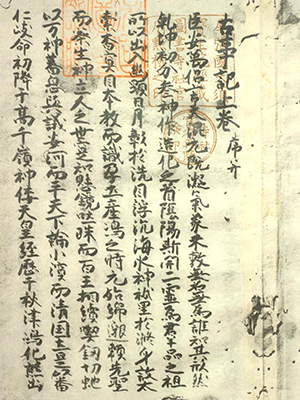 古事記上卷 序并
臣安萬侶言夫混元既凝氣象未效無名無爲誰知其形然
乾坤初分參神作造化之首陰陽斯開二靈爲群品之祖
所以出入幽顯日月彰於洗目浮沉海水神祇呈於滌身故太
素杳冥因本教而識孕土產嶋之時元始綿邈頼先聖
而察生神立人之世寔知懸鏡吐珠而百王相續喫釼切虵
以万神蕃息與議安河而平天下論小濱而清国土是以番
仁岐命初降于高千嶺神倭天皇經歷于秋津嶋化熊出